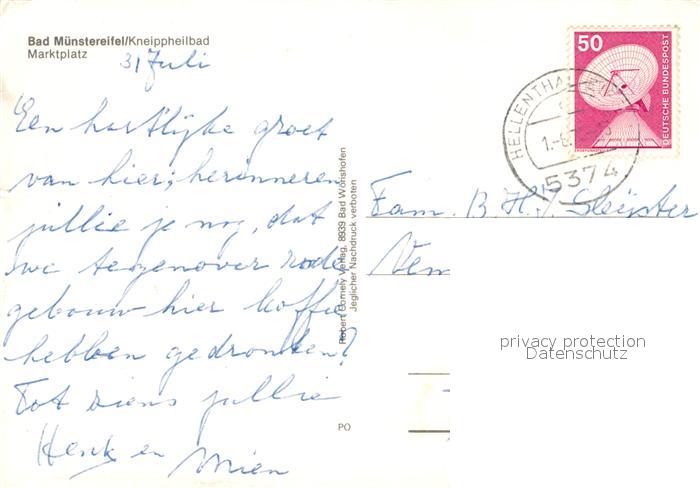 Bad Münstereifel/Kneippheilbad
Marktplatz
31 Juli
Een hartlijke groet
van hier, herinneren
jullie je nog, dat
we tegenover rode
gebouw hier koffie
hebben gedronken?
Tot ziens jullie
Henk en
Wien
Robert Cornely Verlag, 8939 Bad Wörishofen
Jeglicher Nachdruck verboten
PO
50
DEUTSCHE BUNDESPOST
HELLENTHAL
5374
Fam. B. H.
privacy protection
Datenschutz